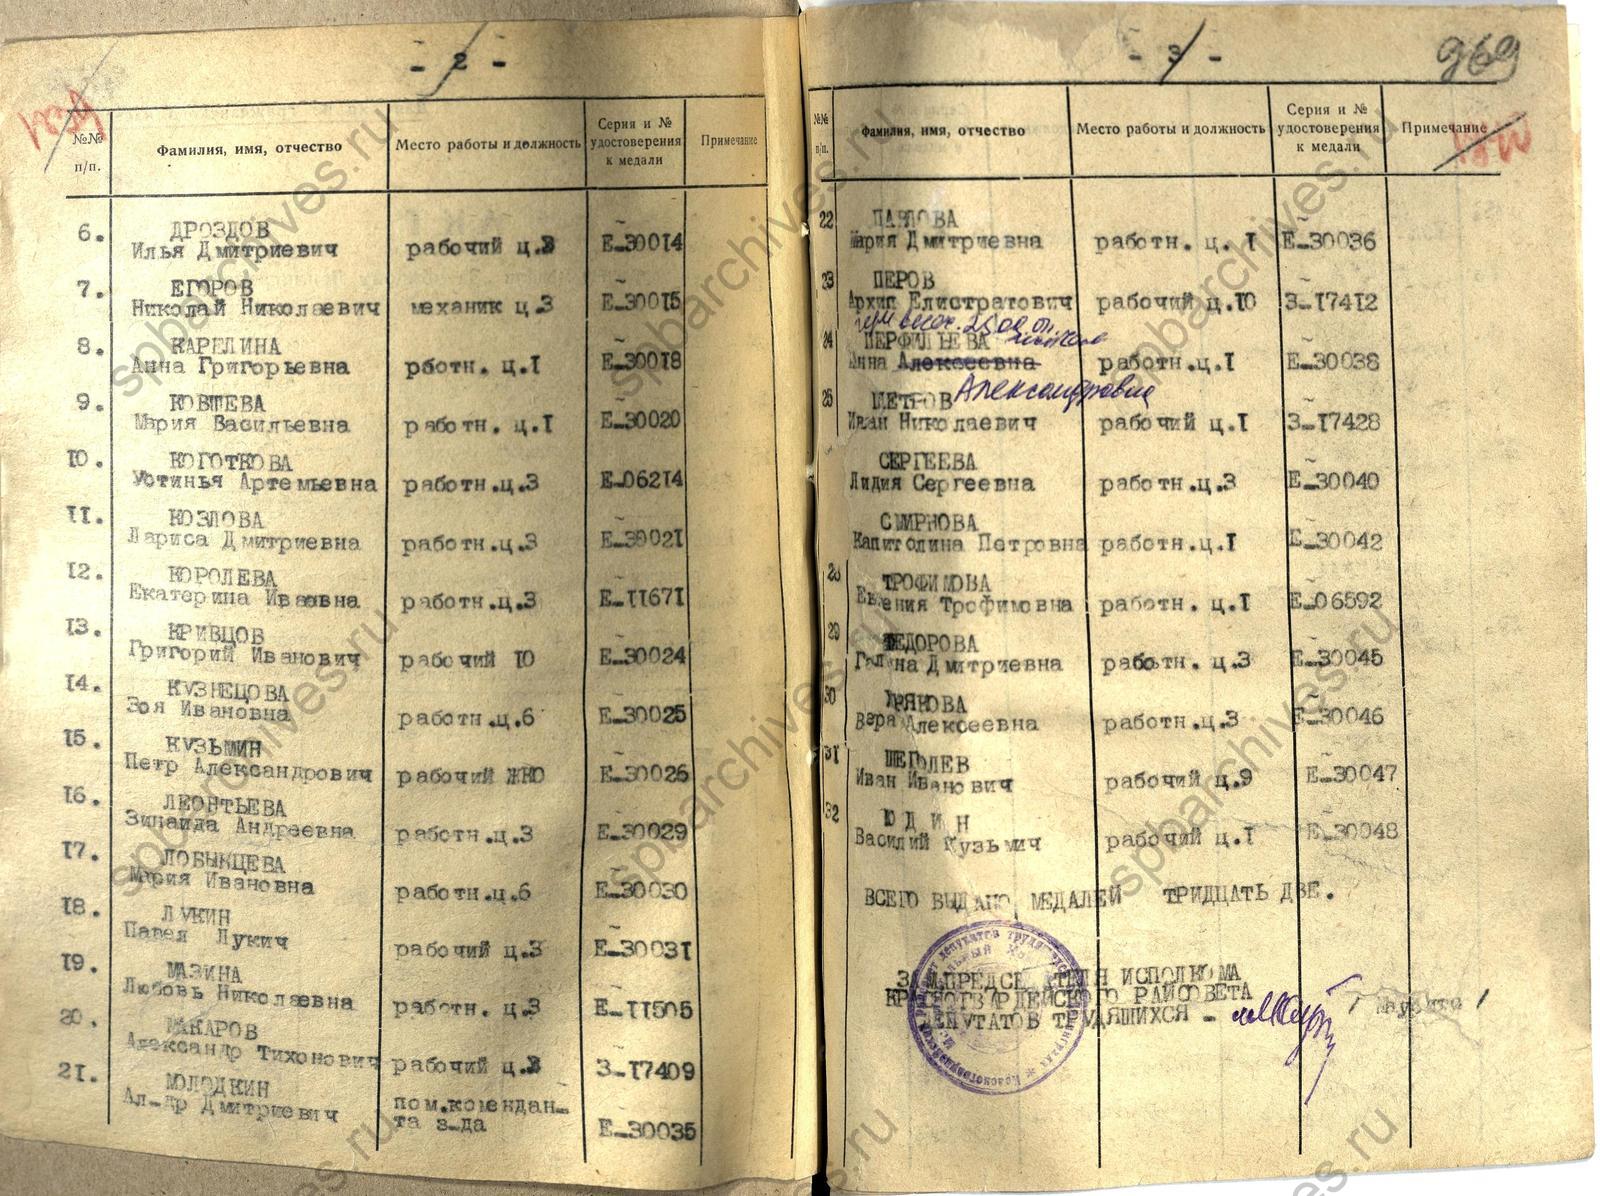 - 2 -
№№ п/п.
Фамилия, имя, отчество
Место работы и должность
Серия и № удостоверения к медали
Примечание
6. ДРОЗДОВ
Илья Дмитриевич рабочий ц.3 Е-30014
7. ЕГОРОВ
Николай Николаевич механик ц.3 Е-30015
8. КАРЕЛИНА
Анна Григорьевна работн. ц.1 Е-30018
9. КОВШЕВА
Мария Васильевна работн. ц.1 Е-30020
10. КОГОТКОВА
Устинья Артемьевна работн.ц.3 Е-06214
11. КОЗЛОВА
Лариса Дмитриевна работн.ц.3 Е-30021
12. КОРОЛЕВА
Екатерина Ивановна работн.ц.3 Е-11671
13. КРИВЦОВ
Григорий Иванович рабочий 10 Е-30024
14. КУЗНЕЦОВА
Зоя Ивановна работн.ц.6 Е-30025
15. КУЗЬМИН
Петр Александрович рабочий ЖКО Е-30026
16. ЛЕОНТЬЕВА
Зинаида Андреевна работн.ц.3 Е-30029
17. ЛОБЫНЦЕВА
Мария Ивановна работн.ц.6 Е-30030
18. ЛУКИН
Павел Лукич рабочий ц.3 Е-30031
19. МАЗИНА
Любовь Николаевна работн.ц.3 Е-11505
20. МАКАРОВ
Александр Тихонович рабочий ц.3 З-17409
21. МОЛОДКИН
Ал-др Дмитриевич пом.комендан-
та з-да Е-30035
- 3 -
969
№№ п/п.
Фамилия, имя, отчество
Место работы и должность
Серия и № удостоверения к медали
Примечание
22 ПАВЛОВА
Мария Дмитриевна работн. ц. 1 Е-30036
23 ПЕРОВ
Архип Елистратович рабочий ц.10 З-17412
24 ПЕРФИЛЬЕВА
Анна Алексеевна работн. ц.1 Е-30038
Александровна
25
Иван Николаевич рабочий ц.1 З-17428
СЕРГЕЕВА
Лидия Сергеевна работн. ц.3 Е-30040
СМИРНОВА
Капитолина Петровна работн. ц.1 Е-30042
28 ТРОФИМОВА
Евгения Трофимовна работн. ц.1 Е-06592
29 ФЕДОРОВА
Галина Дмитриевна работн. ц.3 Е-30045
30
Вера Алексеевна работн. ц.3 Е-30046
31 ЩЕГОЛЕВ
Иван Иванович рабочий ц.9 Е-30047
32 ЮДИН
Василий Кузьмич рабочий ц.1 Е-30048
ВСЕГО ВЫДАНО МЕДАЛЕЙ ТРИДЦАТЬ ДВЕ.
ЗАМ.ПРЕДСЕДАТЕЛЯ ИСПОЛКОМА
КРАСНОГВАРДЕЙСКОГО РАЙСОВЕТА
ДЕПУТАТОВ ТРУДЯЩИХСЯ -
spbarchives.ru